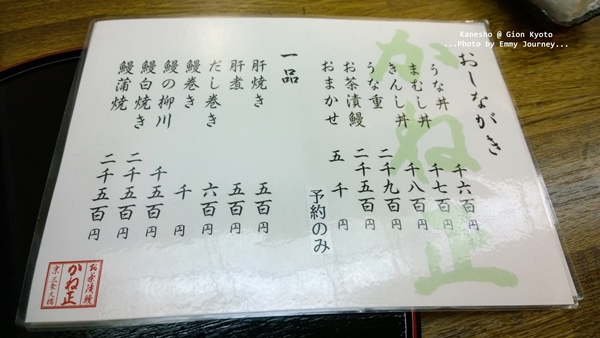 Kanesho @ Gion Kyoto
...Photo by Emmy Journey...
かね正
おしながき
うな丼 千六百円
まむし丼 千七百円
きんし丼 千八百円
うな重 二千九百円
お茶漬鰻 二千五百円
おまかせ 五千円
予約のみ
一品
肝焼き 五百円
肝煮 五百円
だし巻き 六百円
鰻巻き 千円
鰻の柳川 千五百円
鰻白焼き 二千五百円
鰻蒲焼 二千五百円
お茶漬鰻
かね正